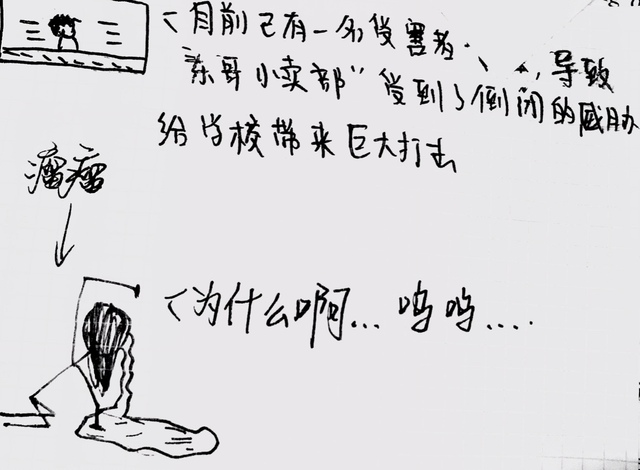 <目前已有一名受害者.
"东哥小卖部"受到了倒闭的威胁
导致
给学校带来巨大打击
瘤瘤
<为什么啊... 呜呜....